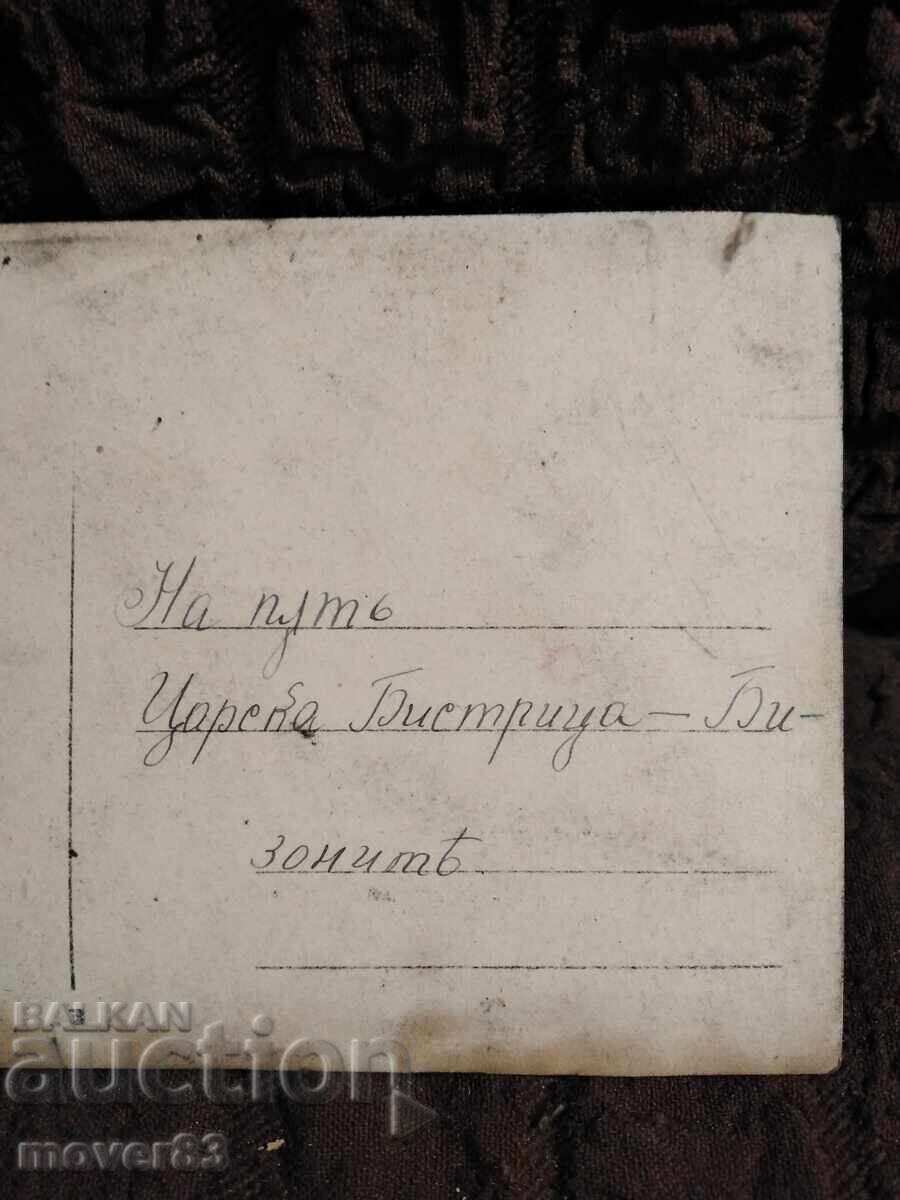 На пѫть
Царска Бистрица — Би-
зонитѣ
BALKAN
auction
mover83